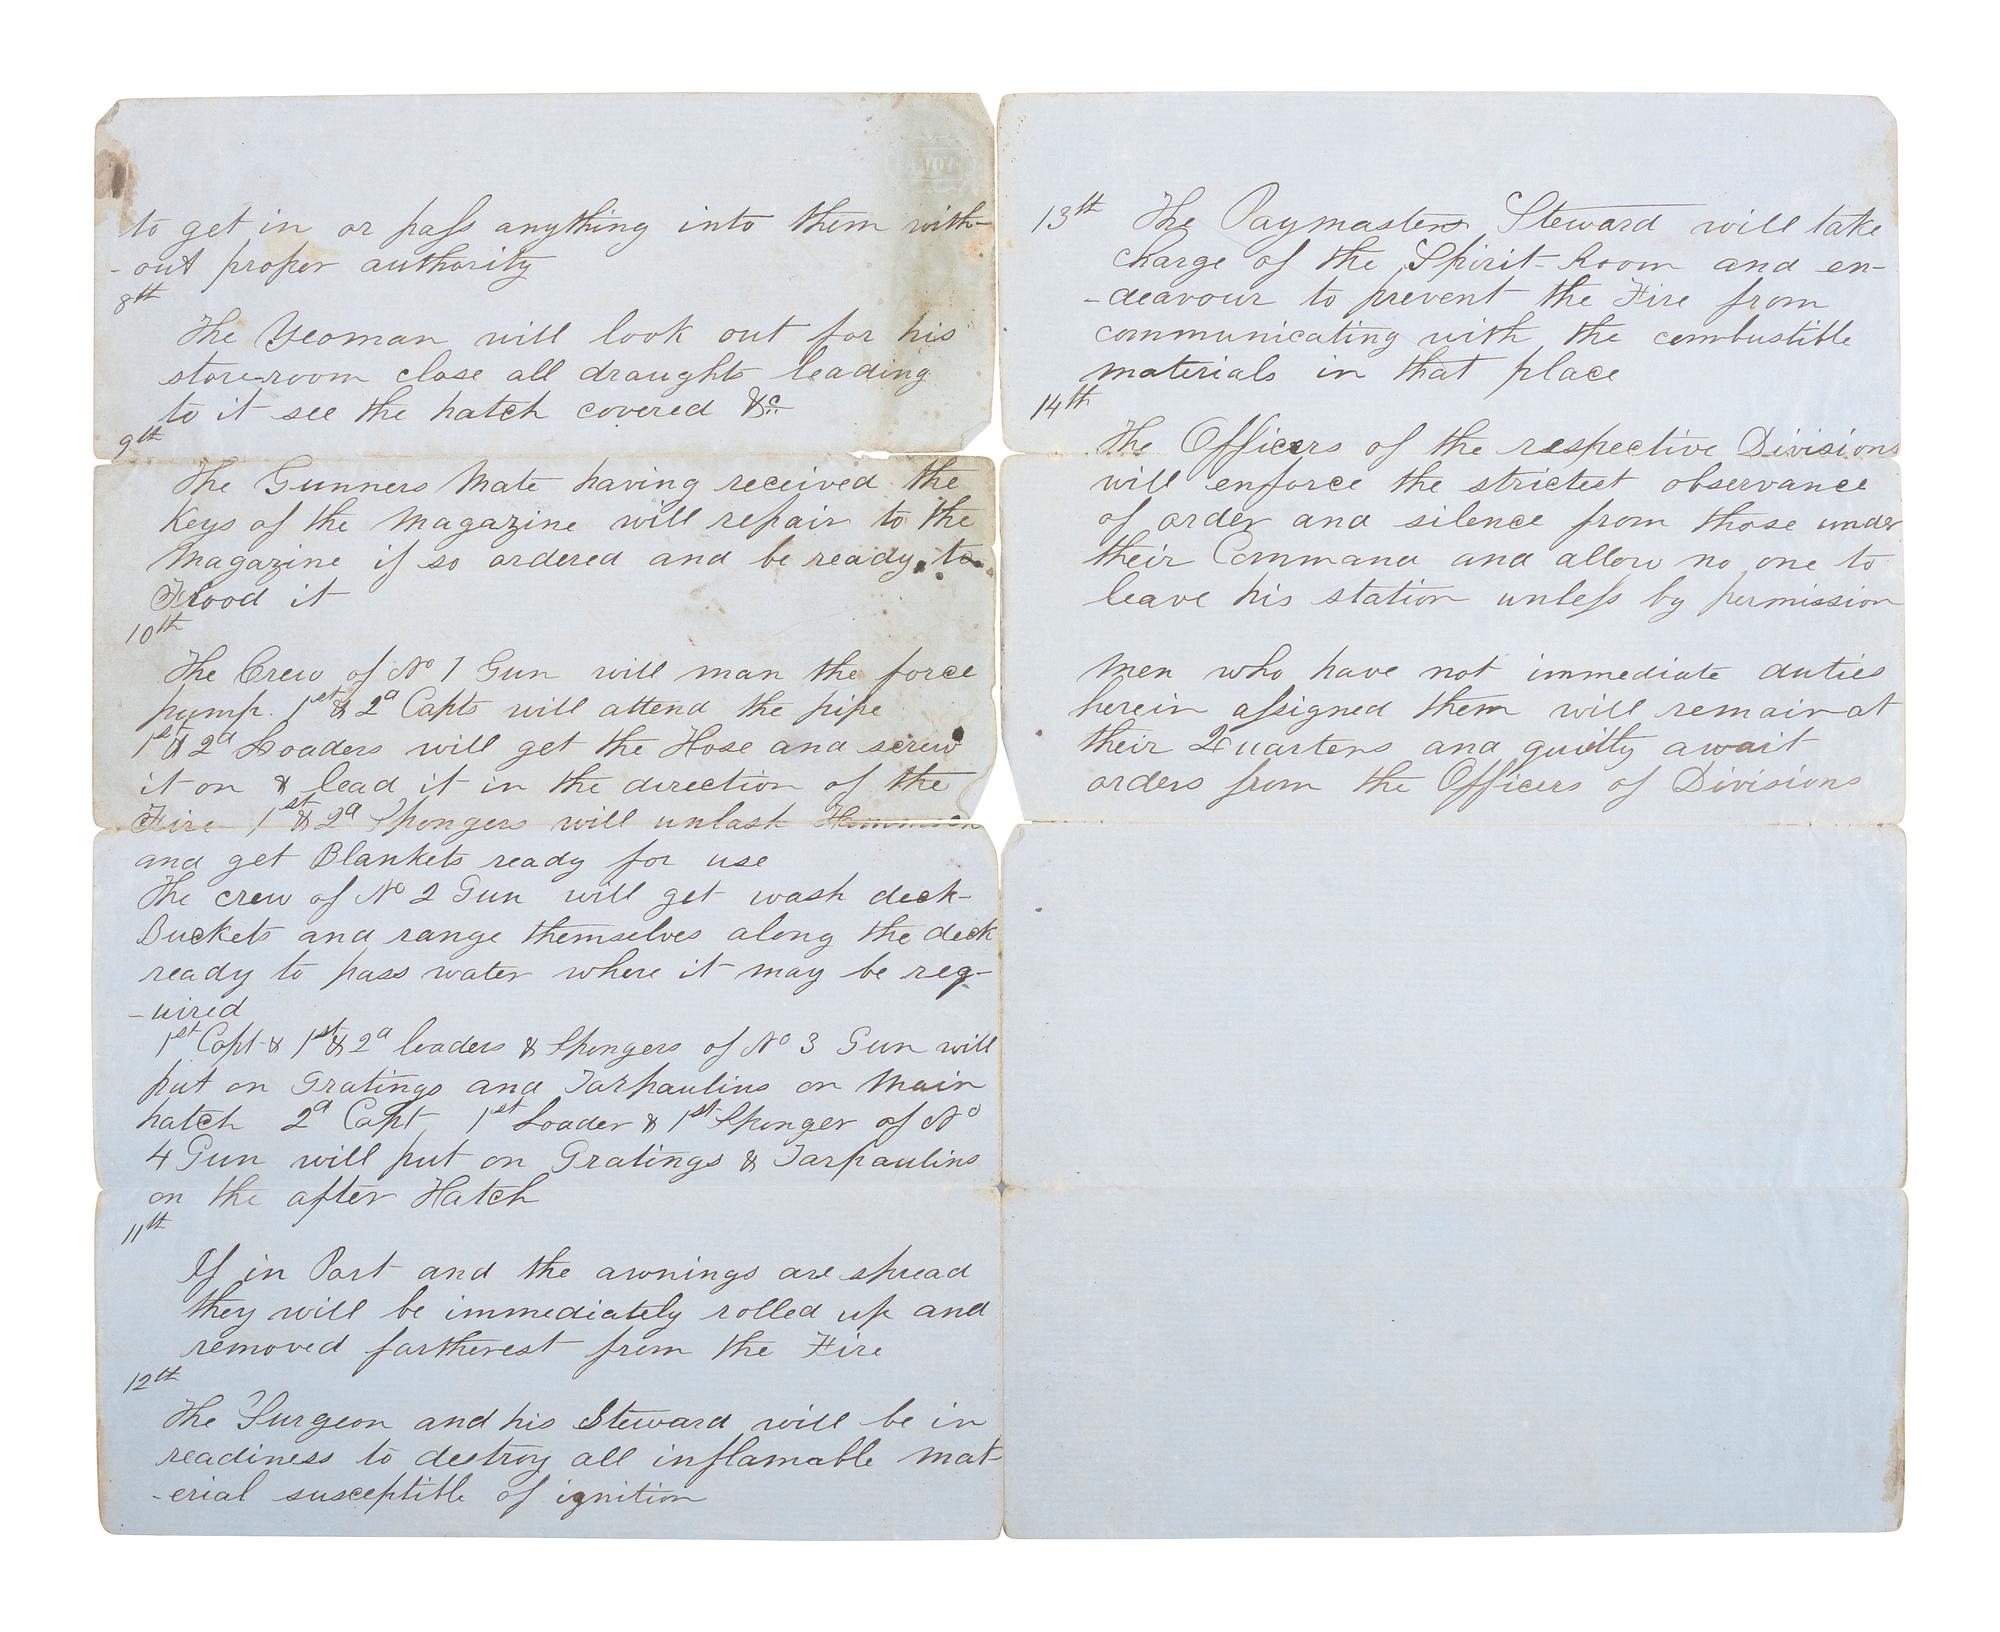 to get in or pass anything into them with-
-out proper authority
8th
The Yeoman will look out for his
store-room close all draughts leading
to it see the hatch covered &c
9th
The Gunners Mate having received the
Keys of the Magazine will repair to the
Magazine if so ordered and be ready to
Flood it
10th
The Crew of No 1 Gun will man the force
pump. 1st & 2d Capts will attend the pipe
1st & 2d Loaders will get the Hose and screw
it on & lead it in the direction of the
Fire 1st & 2d Spongers will unlash Hammock
and get Blankets ready for use
The crew of No 2 Gun will get wash deck-
Buckets and range themselves along the deck
ready to pass water where it may be req-
-uired
1st Capt & 1st & 2d loaders & Spongers of No 3 Gun will
put on Gratings and Tarpaulins on Main
hatch 2d Capt 1st Loader & 1st Sponger of No
4 Gun will put on Gratings & Tarpaulins
on the after Hatch
11th
If in Port and the awnings are spread
they will be immediately rolled up and
removed fartherest from the Fire
12th
The Surgeon and his Steward will be in
readiness to destroy all inflamable mat-
-erial susceptible of ignition
13th The Paymasters Steward will take
charge of the Spirit-Room and en-
-deavour to prevent the Fire from
communicating with the combustible
materials in that place
14th
The Officers of the respective Divisions
will enforce the strictest observance
of order and silence from those under
their Command and allow no one to
leave his station unless by permission
Men who have not immediate duties
herein assigned them will remain at
their Quarters and quietly await
orders from the Officers of Divisions